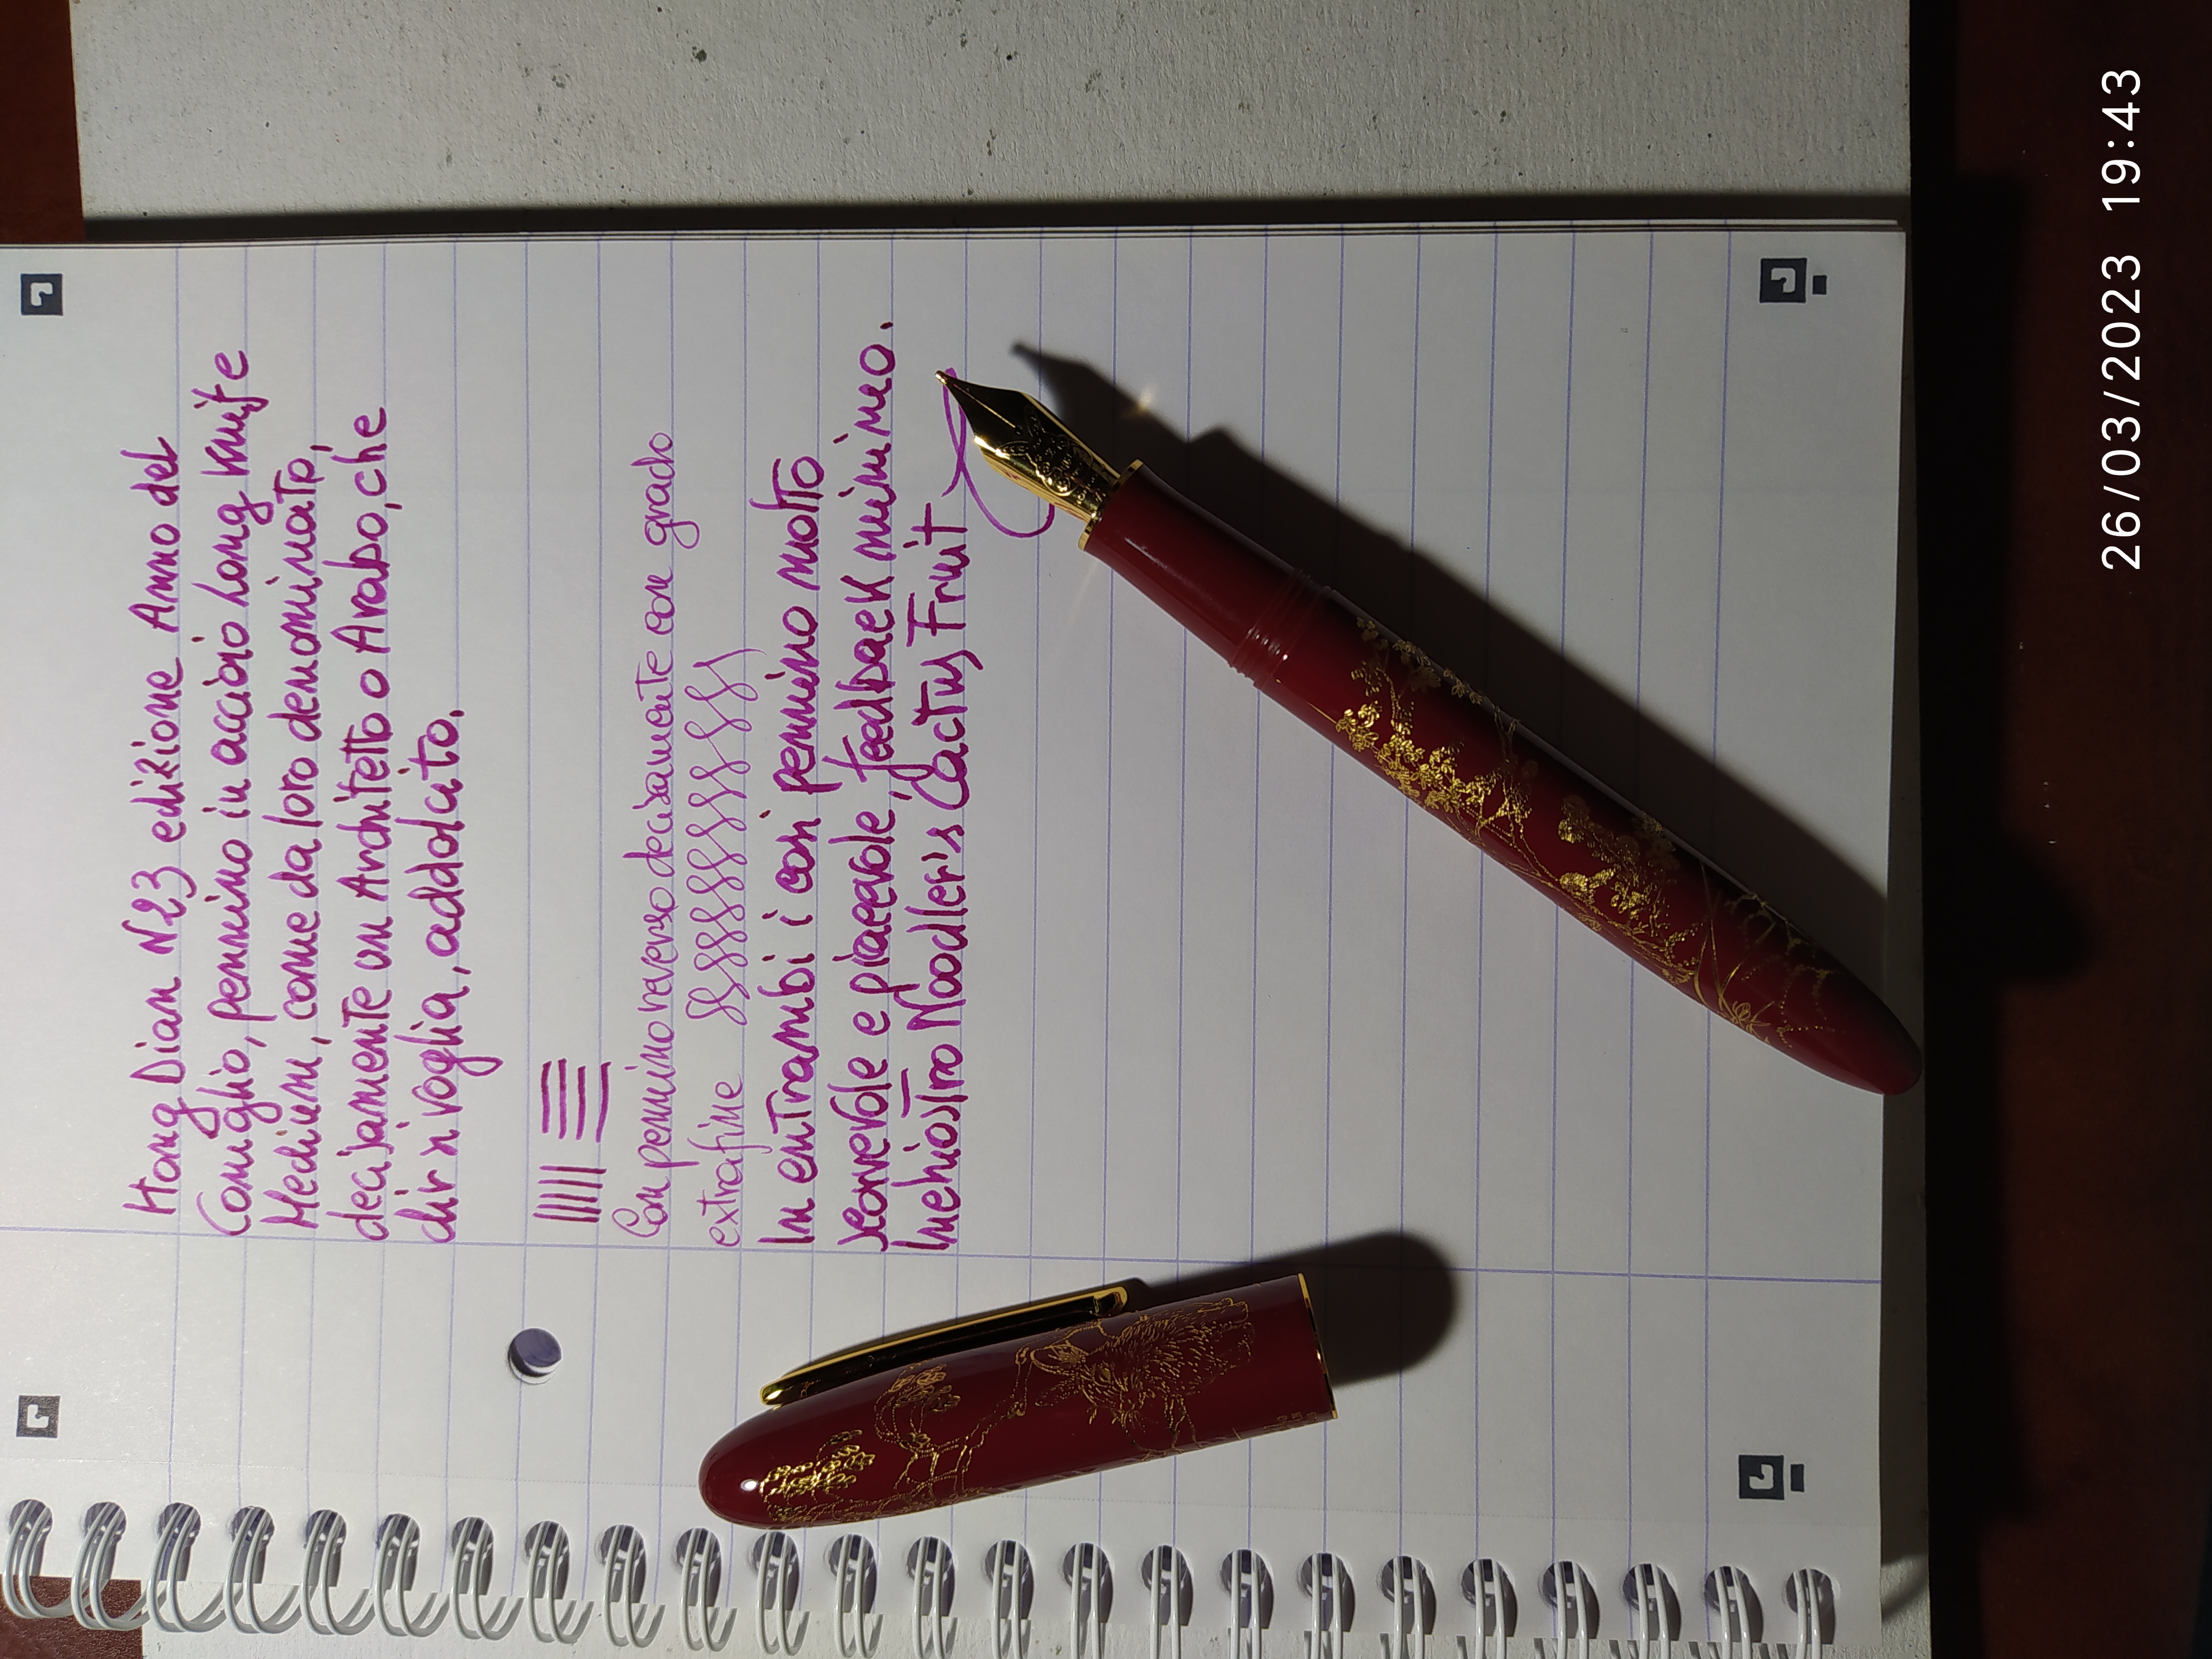 Hong Dian N23 edizione Anno del
Coniglio, pennino in acciaio Long Knife
Medium, come da loro denominato,
decisamente un Architetto o Arabo, che
dir si voglia, addolcito.
Con pennino reverso decisamente con grado
extrafine
In entrambi i casi pennino molto
scorrevole e piacevole, feedback minimo.
Inchiostro Noodler's Cactus Fruit
26/03/2023 19:43